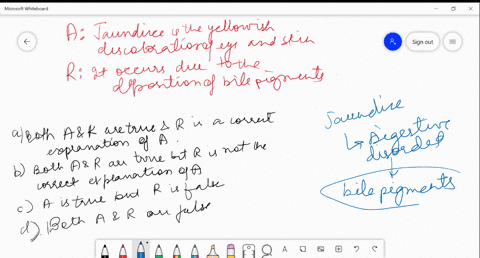 Microsoft Whiteboard
Sign out
A: Jaundice is the yellowish
discoloration of eye and skin
R: It occurs due to the
deposition of bile pigments
a) Both A & R are true & R is a correct
explanation of A.
b) Both A & R are true but R is not the
correct explanation of A
c) A is true but R is false
d) Both A & R are false
Jaundice
↳ Digestive
disorder
bile pigments